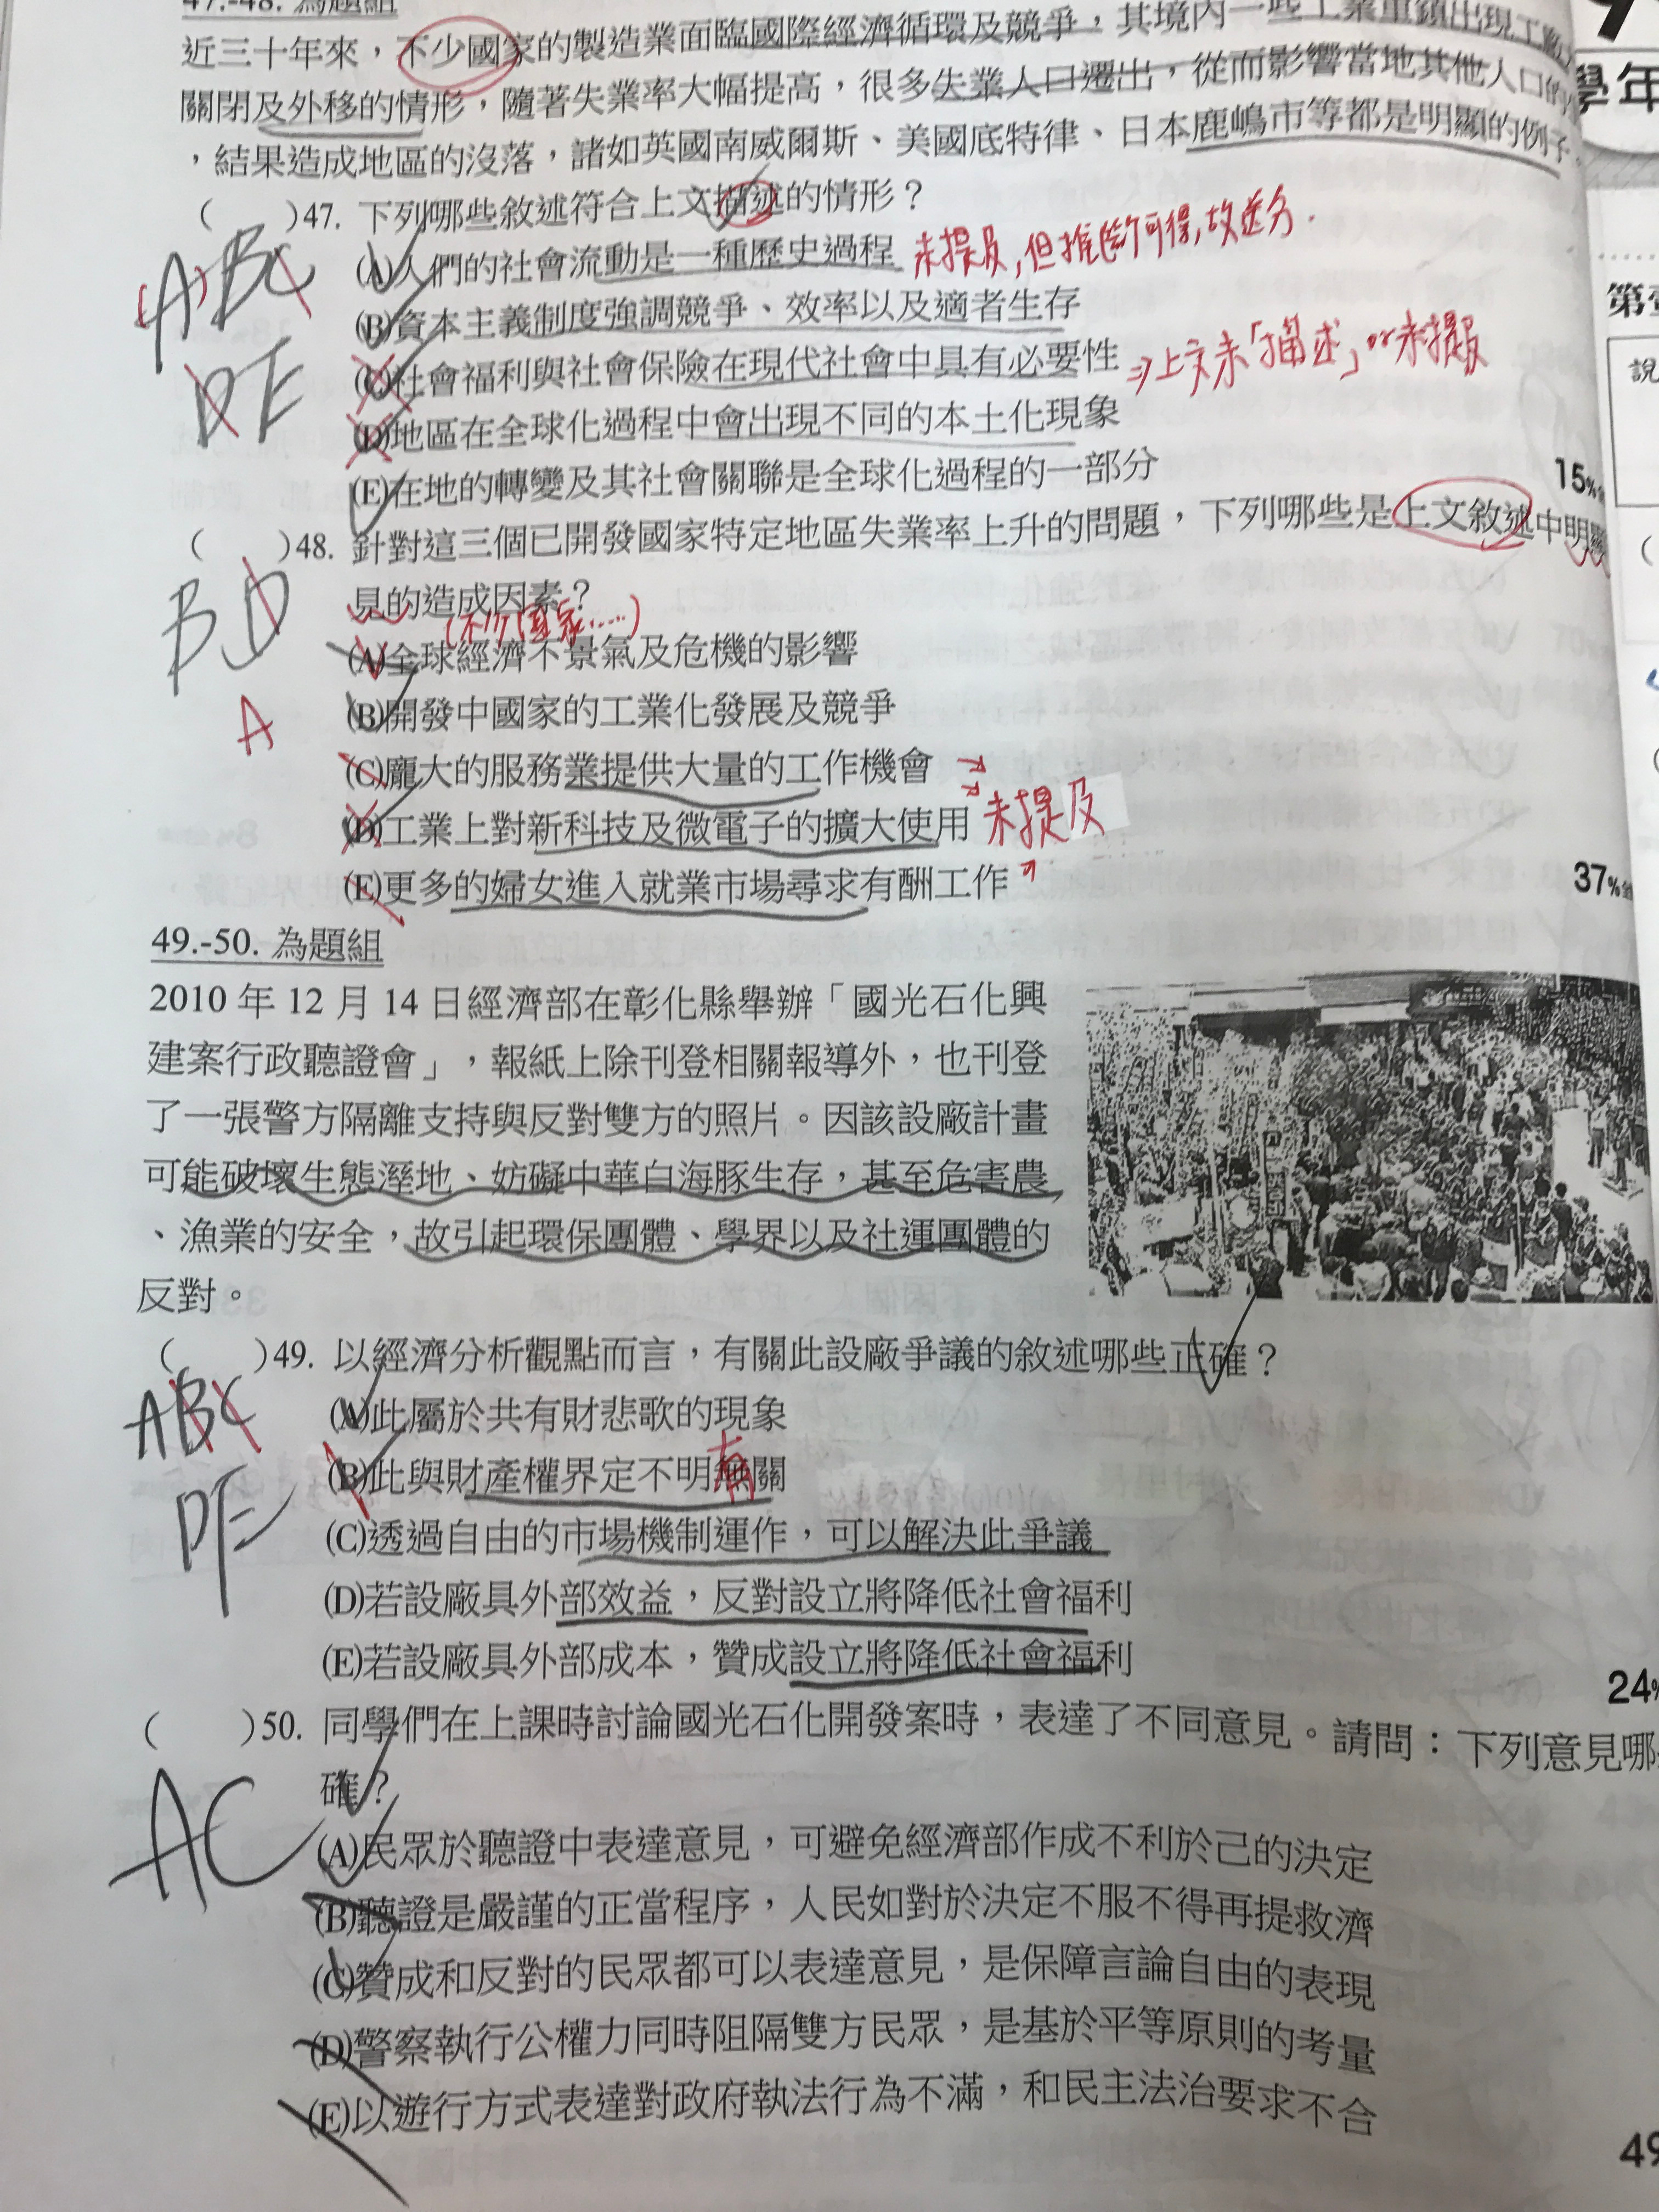 47.-48. 為題組
近三十年來，不少國家的製造業面臨國際經濟循環及競爭，其境內一些工業重鎮出現工廠
關閉及外移的情形，隨著失業率大幅提高，很多失業人口遷出，從而影響當地其他人口的
，結果造成地區的沒落，諸如英國南威爾斯、美國底特律、日本鹿嶋市等都是明顯的例子。
(　　)47. 下列哪些敘述符合上文描述的情形？
(A)人們的社會流動是一種歷史過程 未提及，但推斷可得，故送分.
(B)資本主義制度強調競爭、效率以及適者生存
(C)社會福利與社會保險在現代社會中具有必要性 ⇒上文未「描述」or未提及
(D)地區在全球化過程中會出現不同的本土化現象
(E)在地的轉變及其社會關聯是全球化過程的一部分
(A)BC
DE
15%
(　　)48. 針對這三個已開發國家特定地區失業率上升的問題，下列哪些是上文敘述中明顯
見的造成因素？
(不少國家.....)
(A)全球經濟不景氣及危機的影響
(B)開發中國家的工業化發展及競爭
(C)龐大的服務業提供大量的工作機會
(D)工業上對新科技及微電子的擴大使用 未提及
(E)更多的婦女進入就業市場尋求有酬工作
BD
A
37%
49.-50. 為題組
2010 年 12 月 14 日經濟部在彰化縣舉辦「國光石化興
建案行政聽證會」，報紙上除刊登相關報導外，也刊登
了一張警方隔離支持與反對雙方的照片。因該設廠計畫
可能破壞生態溼地、妨礙中華白海豚生存，甚至危害農
、漁業的安全，故引起環保團體、學界以及社運團體的
反對。
(　　)49. 以經濟分析觀點而言，有關此設廠爭議的敘述哪些正確？
(A)此屬於共有財悲歌的現象
(B)此與財產權界定不明無關
有
(C)透過自由的市場機制運作，可以解決此爭議
(D)若設廠具外部效益，反對設立將降低社會福利
(E)若設廠具外部成本，贊成設立將降低社會福利
ABC
DE
24%
(　　)50. 同學們在上課時討論國光石化開發案時，表達了不同意見。請問：下列意見哪
確？
(A)民眾於聽證中表達意見，可避免經濟部作成不利於己的決定
(B)聽證是嚴謹的正當程序，人民如對於決定不服不得再提救濟
(C)贊成和反對的民眾都可以表達意見，是保障言論自由的表現
(D)警察執行公權力同時阻隔雙方民眾，是基於平等原則的考量
(E)以遊行方式表達對政府執法行為不滿，和民主法治要求不合
AC
49
學年
第
說